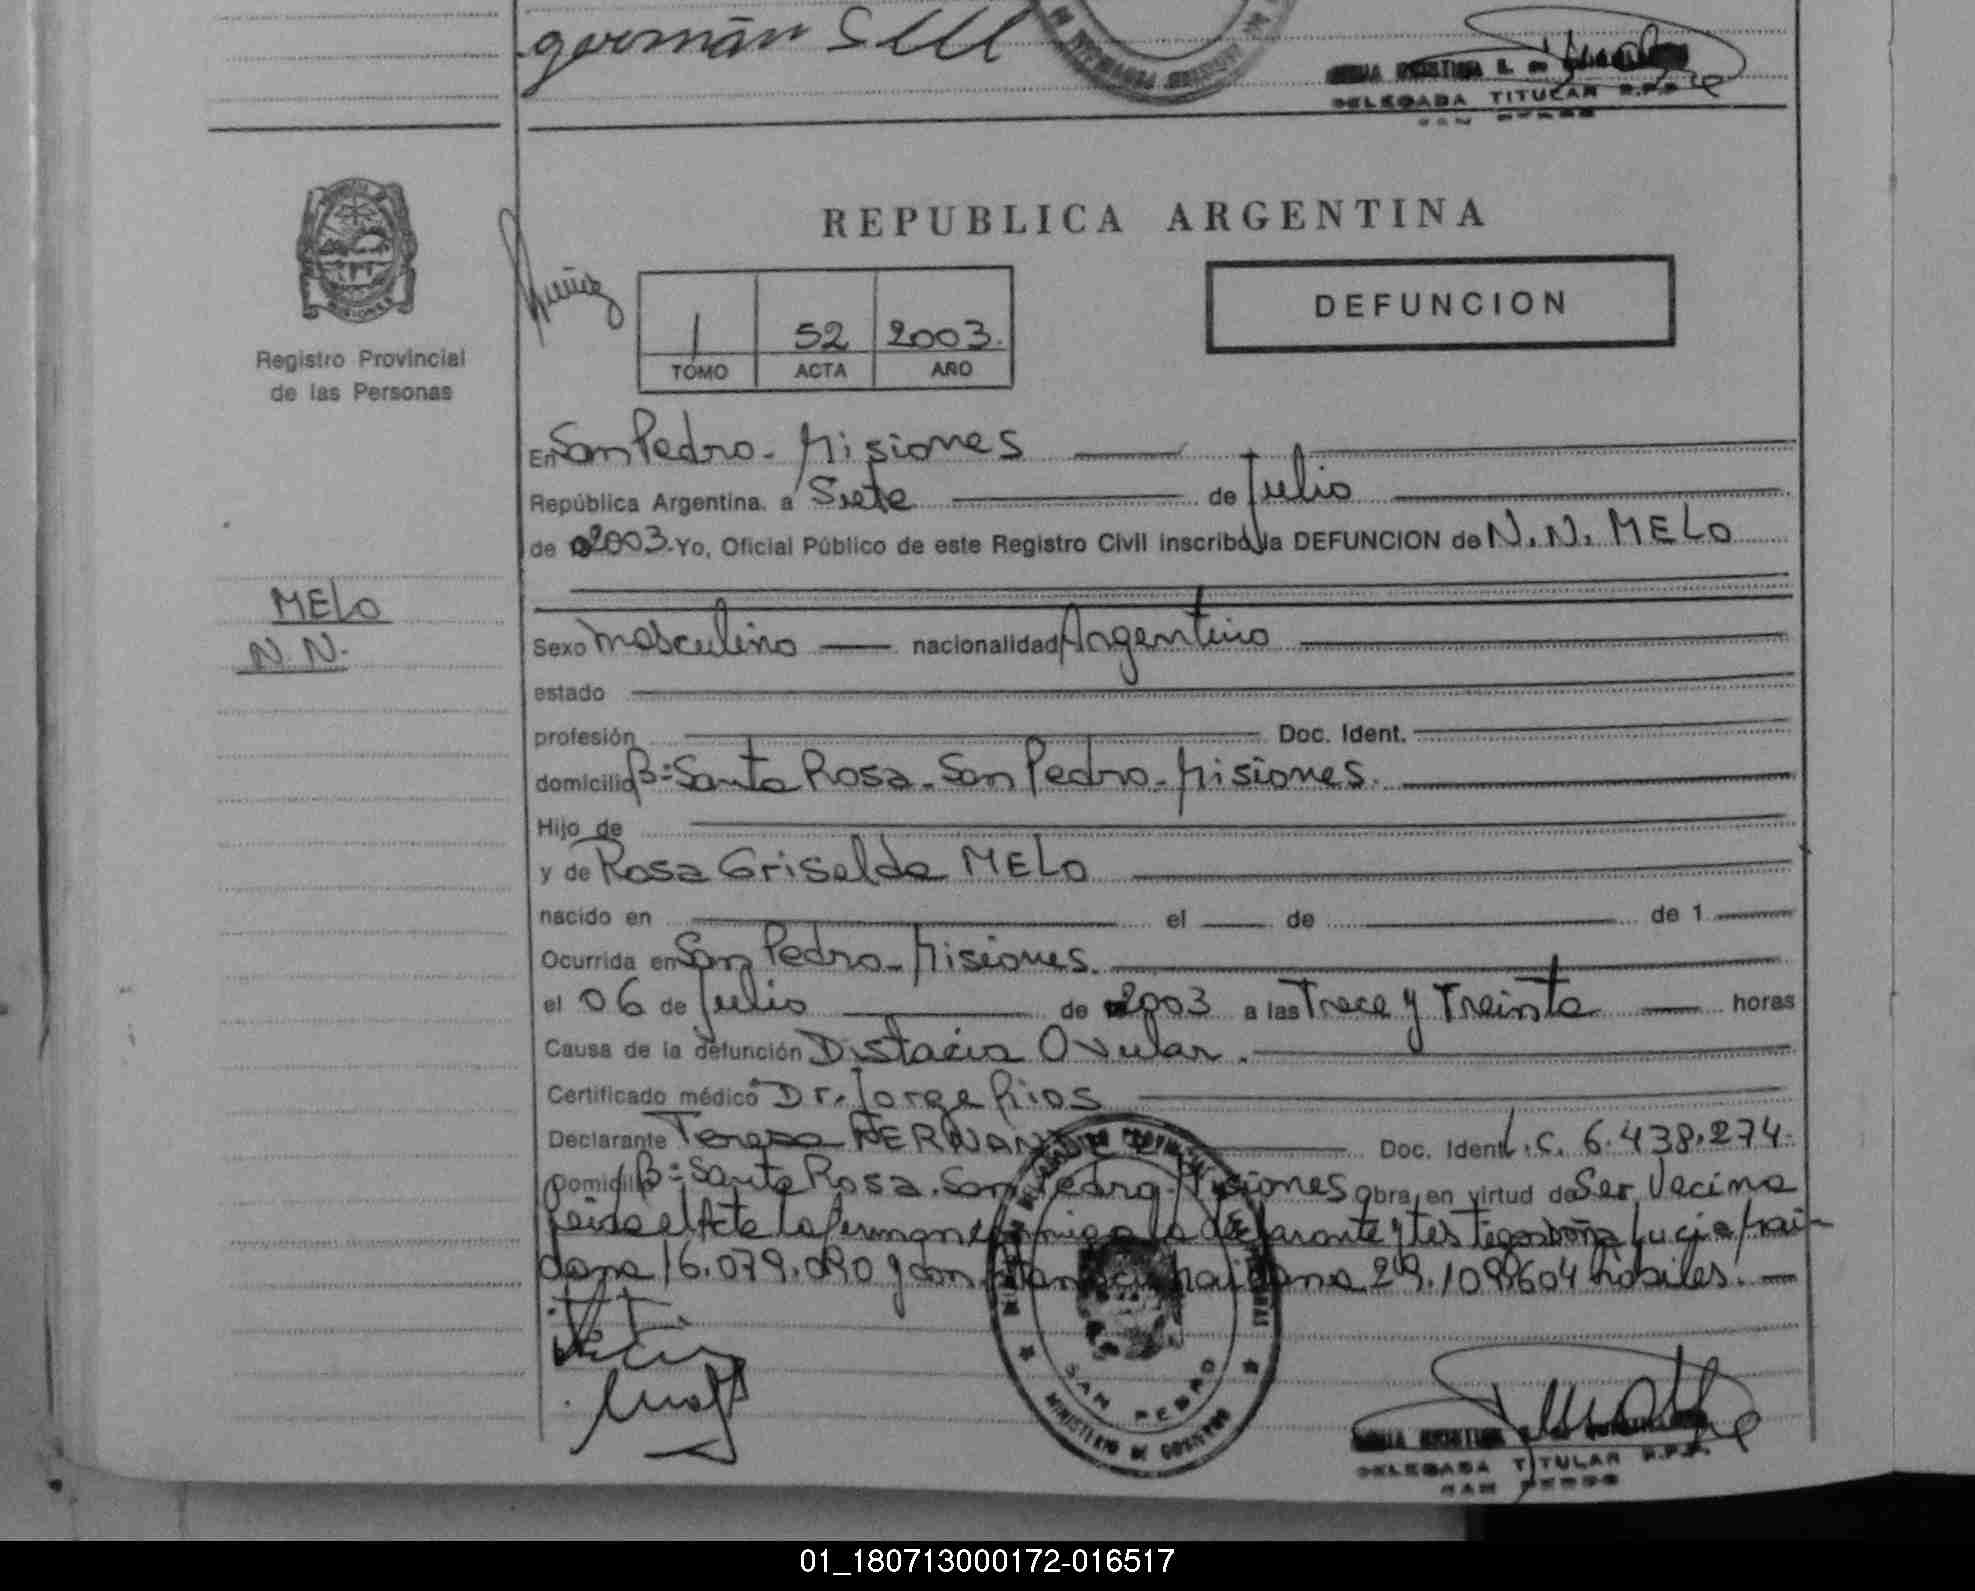 germán
DELEGADA TITULAR R.P.P.
SAN PEDRO
REPUBLICA ARGENTINA
DEFUNCION
1 52 2003.
TOMO ACTA AÑO
Registro Provincial
de las Personas
En San Pedro - Misiones
República Argentina, a Siete de Julio
de 2003. Yo, Oficial Público de este Registro Civil inscribo la DEFUNCION de N.N. MELO
MELO
N.N.
Sexo masculino nacionalidad Argentino
estado
profesión Doc. Ident.
domicilio Bº Santa Rosa - San Pedro - Misiones.
Hijo de
y de Rosa Griselda MELO
nacido en el de de 1
Ocurrida en San Pedro - Misiones.
el 06 de Julio de 2003 a las Trece y Treinta horas
Causa de la defunción Distacia Ovular.
Certificado médico Dr. Jorge Rios
Declarante Teresa Doc. Ident. L.C. 6.438.274.
Domicilio Bº Santa Rosa. San Pedro - Misiones obra en virtud de Ser Vecina
Leida el Acta la firman conmigo la declarante y testigos Lucia
16.079. 29.109.604 habiles.
SAN PEDRO
MINISTERIO DE GOBIERNO
DELEGADA TITULAR R.P.P.
SAN PEDRO
01_180713000172-016517